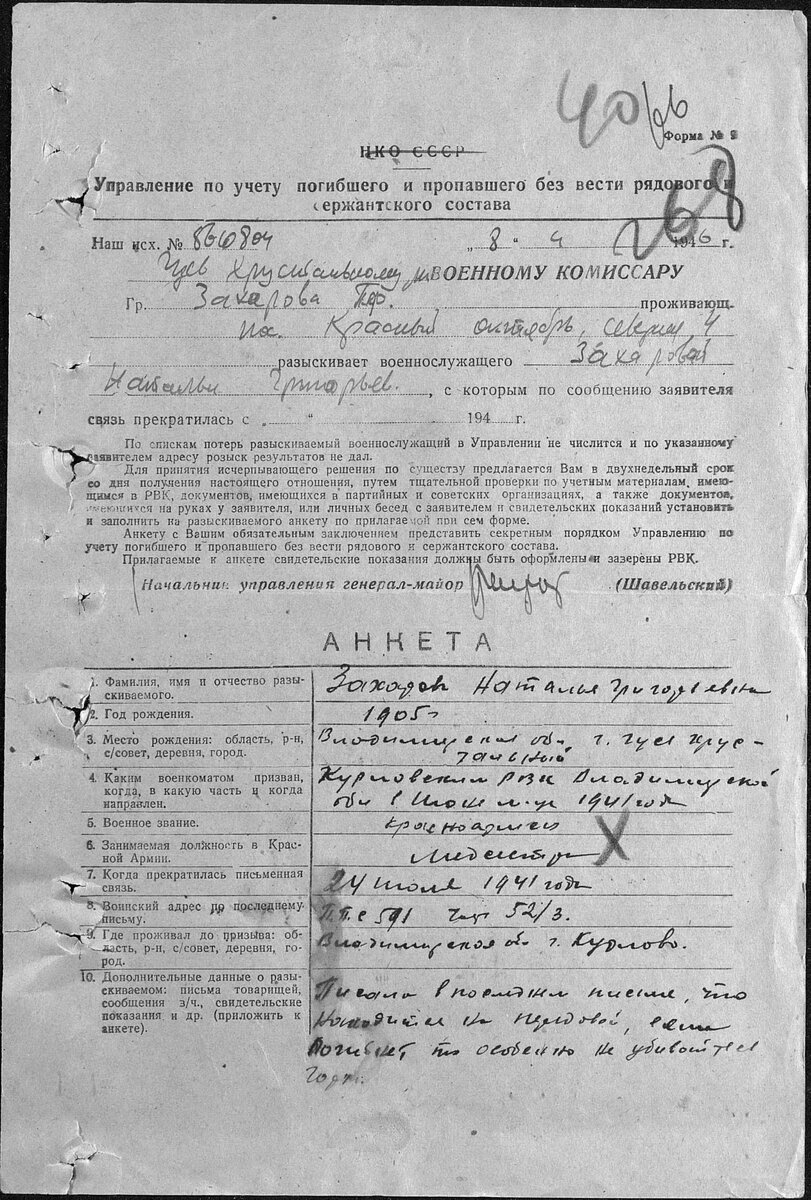 40
Форма № 9
НКО СССР
Управление по учету погибшего и пропавшего без вести рядового и
сержантского состава
268
Наш исх. № 866804 „ 8 “ 4 1946 г.
Гусь Хрустальному ВОЕННОМУ КОМИССАРУ
Гр. Захарова проживающ.
пос. Красный октябрь, Северная, 4
разыскивает военнослужащего Захаровой
Натальи Григорьев. , с которым по сообщению заявителя
связь прекратилась с „ “ 194 г.
По спискам потерь разыскиваемый военнослужащий в Управлении не числится и по указанному
заявителем адресу розыск результатов не дал.
Для принятия исчерпывающего решения по существу предлагается Вам в двухнедельный срок
со дня получения настоящего отношения, путем тщательной проверки по учетным материалам, имею-
щимся в РВК, документов, имеющихся в партийных и советских организациях, а также документов,
имеющихся на руках у заявителя, или личных бесед с заявителем и свидетельских показаний установить
и заполнить на разыскиваемого анкету по прилагаемой при сем форме.
Анкету с Вашим обязательным заключением представить секретным порядком Управлению по
учету погибшего и пропавшего без вести рядового и сержантского состава.
Прилагаемые к анкете свидетельские показания должны быть оформлены и заверены РВК.
Начальник управления генерал-майор (Шавельский)
АНКЕТА
1. Фамилия, имя и отчество разы-
скиваемого.
Захарова Наталья Григорьевна
2. Год рождения.
1905г
3. Место рождения: область, р-н,
с/совет, деревня, город.
Владимирская обл г. Гусь Хрус-
тальный
4. Каким военкоматом призван,
когда, в какую часть и когда
направлен.
Курловским РВК Владимирской
обл в Июне м-це 1941 года
5. Военное звание.
красноармеец
6. Занимаемая должность в Крас-
ной Армии.
Медсестра
7. Когда прекратилась письменная
связь.
24 июля 1941 года
8. Воинский адрес по последнему
письму.
П.П.С 591 52/3.
9. Где проживал до призыва: об-
ласть, р-н, с/совет, деревня, го-
род.
Владимирская обл г. Курлово.
10. Дополнительные данные о разы-
скиваемом: письма товарищей,
сообщения з/ч., свидетельские
показания и др. (приложить к
анкете).
Писала в последнем письме, что
находится на передовой, если
погибнет то особенно не убивайтесь